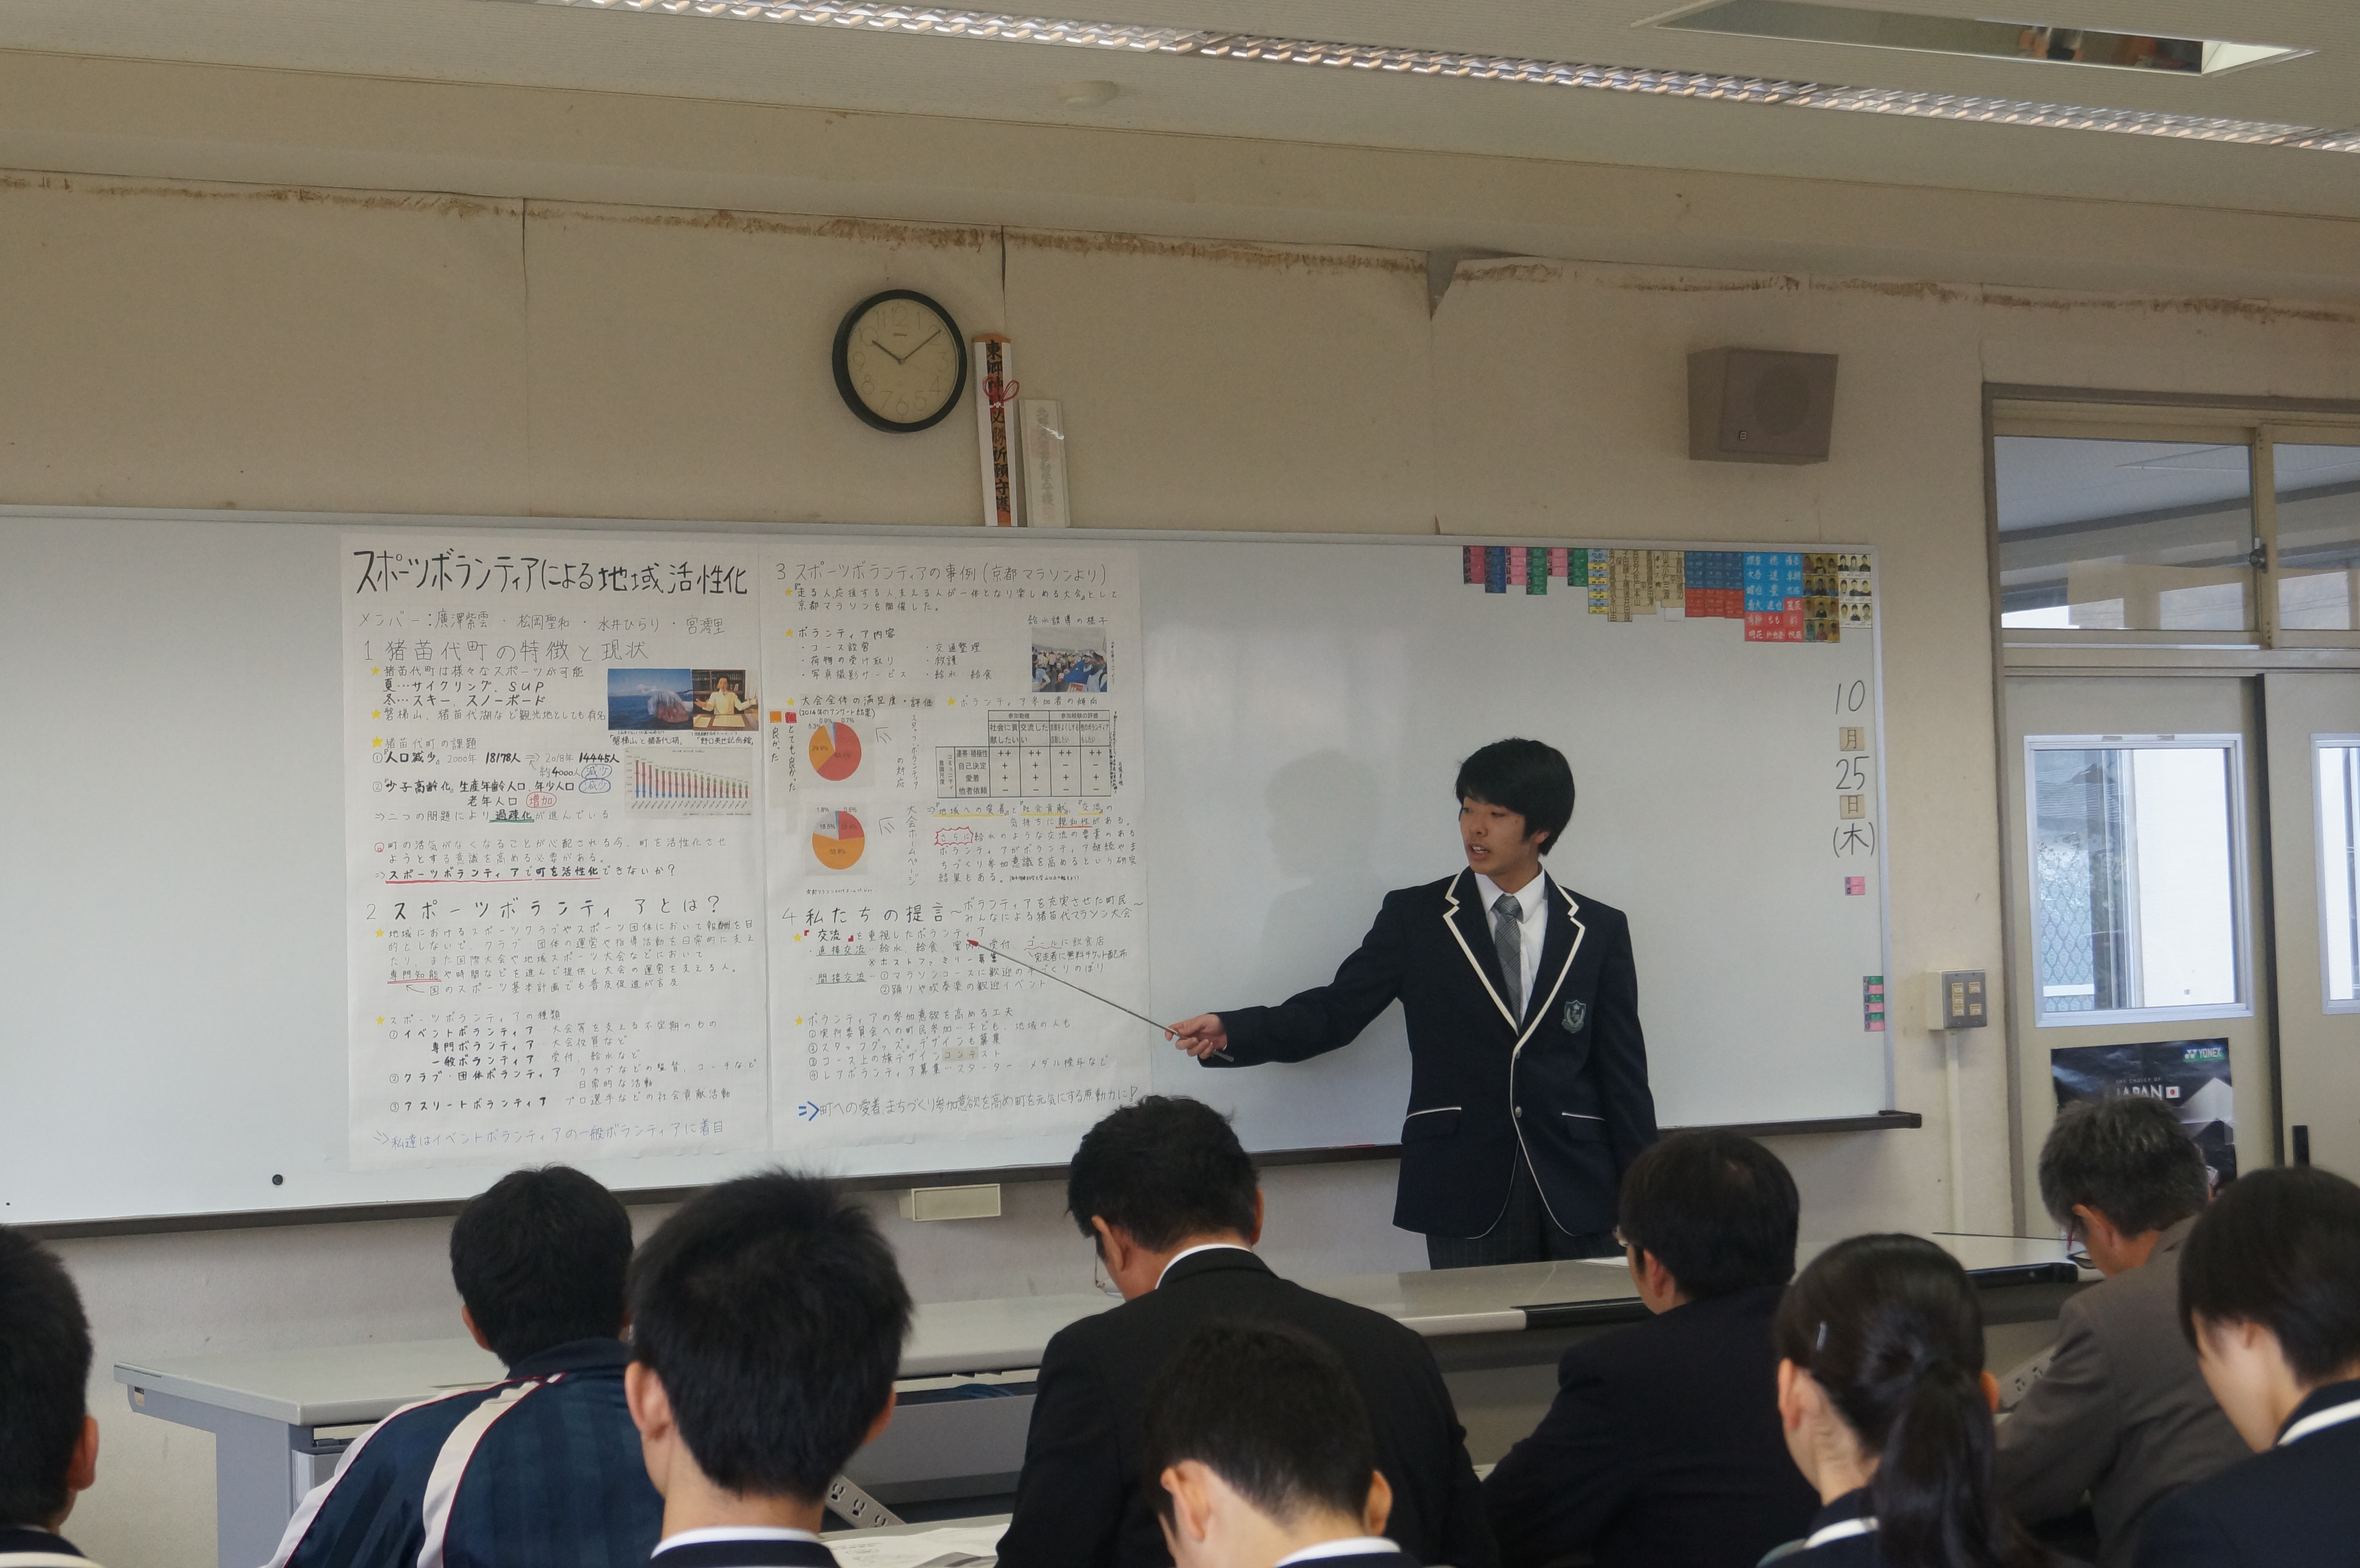 スポーツボランティアによる地域活性化
メンバー:廣澤紫雲 ・ 松岡聖和 ・ 水井ひらり ・ 宮澤里
1 猪苗代町の特徴と現状
猪苗代町は様々なスポーツが可能
夏…サイクリング、SUP
冬…スキー、スノーボード
磐梯山、猪苗代湖など観光地としても有名
「磐梯山と猪苗代湖」
「野口英世記念館」
猪苗代町の課題
①『人口減少』 2000年 18178人 ⇒ 2018年 14445人
約4000人 減少
②『少子高齢化』 生産年齢人口、年少人口 減少
老年人口 増加
⇒二つの問題により過疎化が進んでいる
町の活気がなくなることが心配される今、町を活性化させ
ようとする意識を高める必要がある。
⇒スポーツボランティアで町を活性化できないか?
2 スポーツボランティアとは?
地域におけるスポーツクラブやスポーツ団体において報酬を目
的としないで、クラブ・団体の運営や指導活動を日常的に支え
たり、また国際大会や地域スポーツ大会などにおいて
専門知能や時間などを進んで提供し大会の運営を支える人。
国のスポーツ基本計画でも普及促進が言及
スポーツボランティアの種類
①イベントボランティア 大会等を支える不定期のもの
専門ボランティア 大会役員など
一般ボランティア 受付、給水など
②クラブ・団体ボランティア クラブなどの監督、コーチなど
日常的な活動
③アスリートボランティア プロ選手などの社会貢献活動
⇒私達はイベントボランティアの一般ボランティアに着目
3 スポーツボランティアの事例(京都マラソンより)
『走る人、応援する人、支える人が一体となり楽しめる大会』として
京都マラソンを開催した。
ボランティア内容
・コース設営 ・交通整理
・荷物の受け取り ・救護
・写真撮影サービス ・給水 給食
給水誘導の様子
大会全体の満足度・評価
とても良かった
良かった
スタッフ・ボランティアの対応
大会ホームページ
ボランティア参加者の傾向
参加動機 参加経験の評価
社会に貢献したい 交流したい
連帯・積極性 ++ ++ ++ ++
自己決定 + + − −
愛着 + + + +
他者依頼 − − − −
⇒『地域への愛着』と『社会貢献』、『交流』の
気持ちに親和性がある。
さらに給水のような交流の要素のある
ボランティアがボランティア継続やま
ちづくり参加意識を高めるという研究
結果もある。
4 私たちの提言～ボランティアを充実させた町民
みんなによる猪苗代マラソン大会～
『交流』を重視したボランティア
・直接交流 - 給水、給食、 受付、ゴールに飲食店
完走者に無料チケット配布
※ホストファミリー
・間接交流 - ①マラソンコースに歓迎の手づくりのぼり
②踊りや吹奏楽の歓迎イベント
ボランティアの参加意欲を高める工夫
①実行委員会への町民参加…子ども、地域の人も
②スタッフグッズ・デザインも募集
③コース上の旗デザインコンテスト
④レアボランティア募集…スターター メダル掛けなど
⇒町への愛着、まちづくり参加意欲を高め町を元気にする原動力に!
東郷神社必勝祈願守護
10
月
25
日
(木)
YONEX
JAPAN